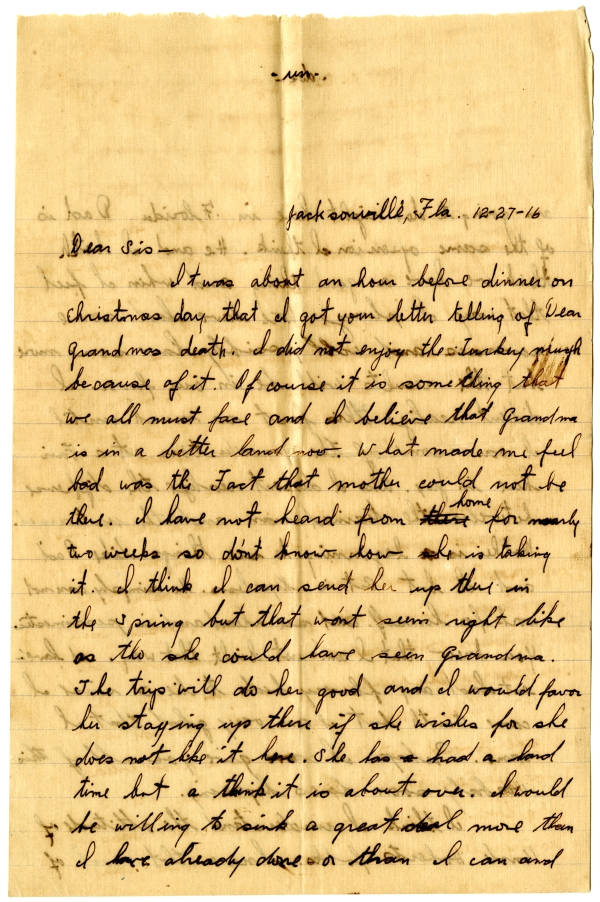 Jacksonville, Fla. 12-27-16
Dear Sis—
It was about an hour before dinner on
Christmas day that I got your letter telling of Dear
Grandmas death. I did not enjoy the Turkey much
because of it. Of course it is something that
we all must face and I believe that Grandma
is in a better land now. What made me feel
bad was the Fact that mother could not be
there. I have not heard from there home for nearly
two weeks so don't know how she is taking
it. I think I can send her up there in
the Spring but that won't seem right like
as tho she could have seen Grandma.
The trip will do her good and I would favor
her staying up there if she wishes for she
does not like it here. She has had a hard
time but a think it is about over. I would
be willing to sink a great deal more than
I have already done or than I can and